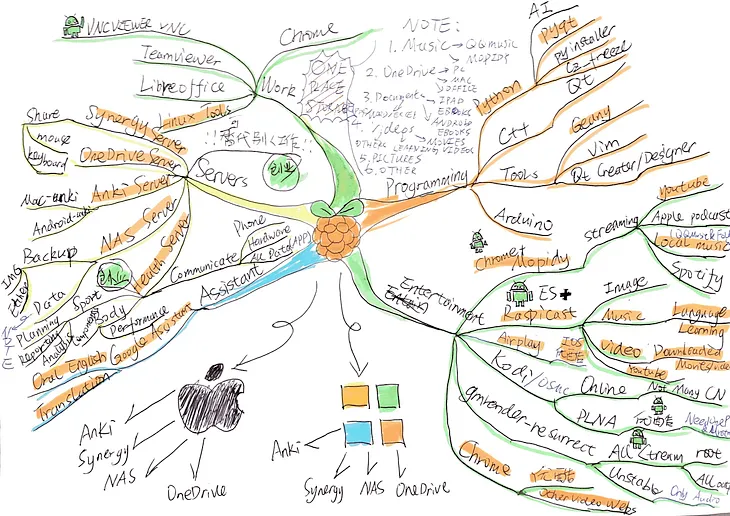 VNCVIEWER VNC
Teamviewer
Libreoffice
Linux Tools
Chrome
Work
ONE
PLACE
STORE
NOTE:
1. Music → QQmusic
MOPIDY
2. OneDrive → PC
MAC
OFFICE
3. Documents → IPAD
EBOOKS
ANDROID
EBOOKS
4. Videos → MOVIES
OTHERS LEARNING VIDEO
5. PICTURES
6. OTHER
AI
Pyqt
pyinstaller
cx_freeze
Python
Qt
C++
Geany
Vim
Tools
Qt Creator/Designer
Programming
Arduino
Share
mouse
keyboard
Synergy Server
OneDrive Server
Mac-anki
Android-anki
Anki Server
NAS Server
Backup
Data
Health Server
Sport
Body
Performance
Planning
Reporting
Servers
!!替代别人工作!!
创业
Phone
Hardware
All Data(APP)
Communicate
Assistant
Google Assistant
Oral English
Translation
Chrome
Mopidy
streaming
youtube
Apple podcast
Local music
Spotify
Entertainment
ES
Raspicast
Image
Music
Video
Language
Learning
Downloaded
Youtube
Movies/video
Airplay
IOS
Kodi/osmc
Online
Not Many CN
PLNA
优酷
gmrender-resurrect
All Stream
root
Unstable
Only Audio
Chrome
优酷
Other Video Webs
Anki
Synergy
NAS
OneDrive
Anki
Synergy
NAS
OneDrive